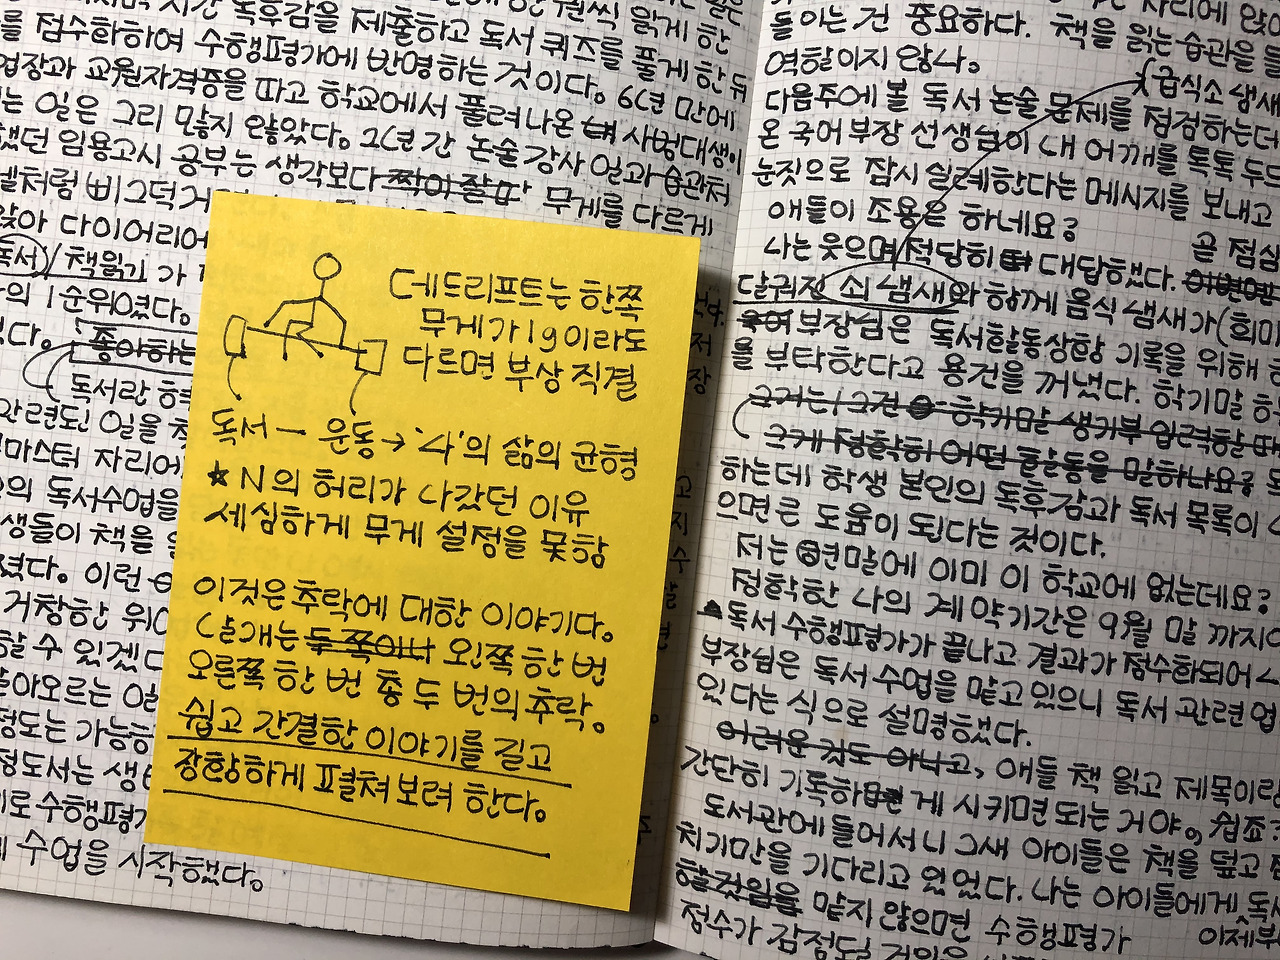 시간 독후감을 제출하고 독서 퀴즈를 풀게 한 뒤
를 점수화하여 수행평가에 반영하는 것이다. 6년 만에
업장과 교원자격증을 따고 학교에서 풀려나온 사범대생이
는 일은 그리 많지 않았다. 2년 간 논술 강사 일과 습관처
했던 임용고시 공부는 생각보다 무게를 다르게
처럼 삐그덕거
앉아 다이어리에
독서/책읽기가
의 1순위였다.
다. 좋아하는
독서란
관련된 일을
마스터 자리에
의 독서수업을
생들이 책을
졌다. 이런
거창한 위
할 수 있겠다
날아오르는
정도는 가능하
정도서는 생
로 수행평가
수업을 시작했다.
데드리프트는 한쪽
무게가 1g이라도
다르면 부상 직결
독서 — 운동 → '나'의 삶의 균형
★ N의 허리가 나갔던 이유
세심하게 무게 설정을 못함
이것은 추락에 대한 이야기다.
날개는 두쪽이나 왼쪽 한 번
오른쪽 한 번 총 두 번의 추락.
쉽고 간결한 이야기를 길고
장황하게 펼쳐보려 한다.
들이는 건 중요하다. 책을 읽는 습관을 들
역할이지 않나.
(급식소 냄새
다음주에 볼 독서 논술 문제를 점검하는데
온 국어부장 선생님이 내 어깨를 톡톡 두드
눈짓으로 잠시 실례한다는 메시지를 보내고
애들이 조용은 하네요?
곧 점심
나는 웃으며 적당히 대답했다.
달궈진 쇠 냄새와 함께 음식 냄새가 (희미
부장님은 독서활동상황 기록을 위해
을 부탁한다고 용건을 꺼냈다. 학기말
그거는/그건 학기말 생기부 입력할 때
그게 정확히 어떤 활동을 말하나요?
하는데 학생 본인의 독후감과 독서 목록이
으면 큰 도움이 된다는 것이다.
저는 연말에 이미 이 학교에 없는데요?
정확한 나의 계약기간은 9월 말 까지
▲독서 수행평가가 끝나고 결과가 점수화되어
부장님은 독서 수업을 맡고 있으니 독서 관련 업
있다는 식으로 설명했다.
어려운 것도 아니고, 애들 책 읽고 제목이랑
간단히 기록하게 시키면 되는 거야. 쉽죠?
도서관에 들어서니 그새 아이들은 책을 덮고
치기만을 기다리고 있었다. 나는 아이들에게 독서
할것임을 맡지 않으면 수행평가
이제부
점수가 감점될